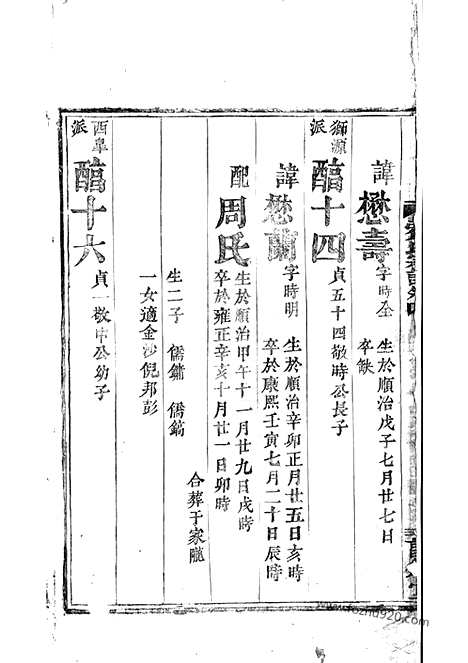 諱懋壽字時全 生於順治戊子七月廿七日
卒缺
獅源派 醕十四 貞五十四敬時公長子
諱懋蘭字時明 生於順治辛卯正月廿五日亥時
卒於康熙壬寅七月二十日辰時
配周氏 生於順治甲午十一月廿九日戌時
卒於雍正辛亥十月廿一日卯時
合葬于家隴
生二子 儒鏞 儒鎬
一女適金沙倪邦彭
西臯派 醕十六 貞一敬中公幼子
www.fozhu920.com